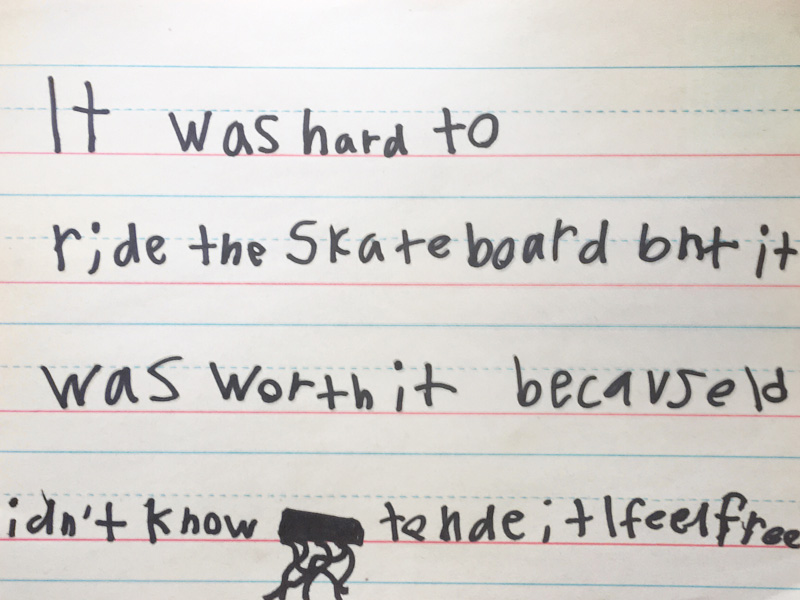 It was hard to
ride the Skateboard but it
was worth it because Id
idn't know to ride it I feel free